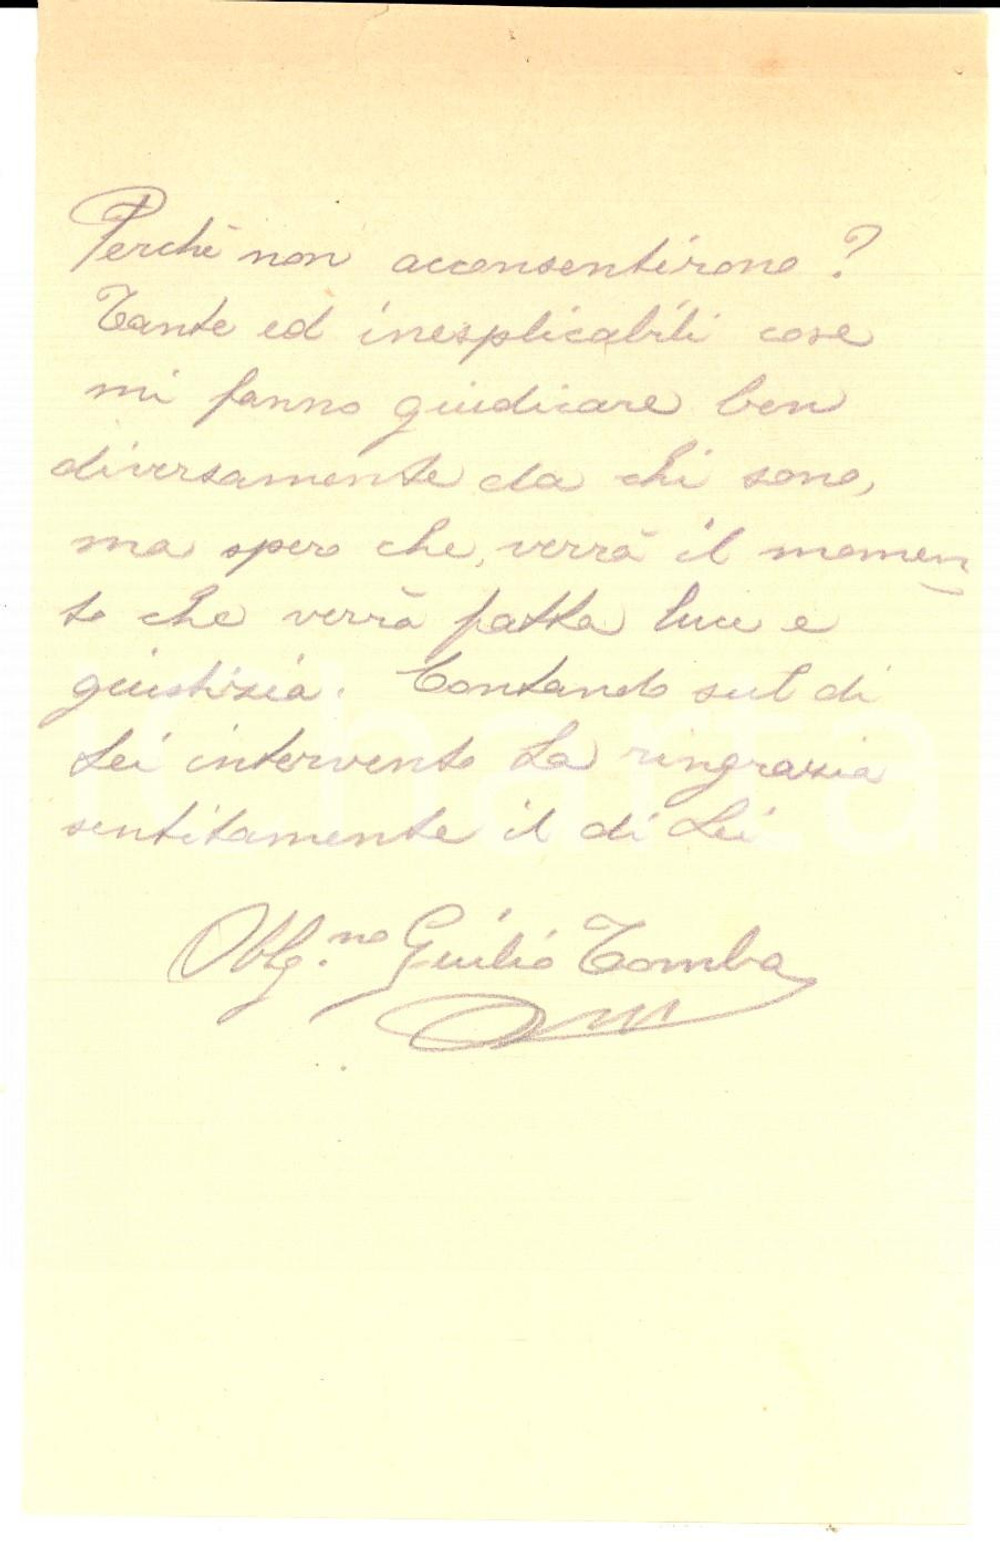 Perchè non acconsentirono?
Tante ed inesplicabili cose
mi fanno giudicare ben
diversamente da chi sono,
ma spero che, verrà il momen
to che verrà fatta luce e
giustizia. Contando sul di
Lei intervento La ringrazia
sentitamente il di Lei
Obbg.mo Giulio Tomba